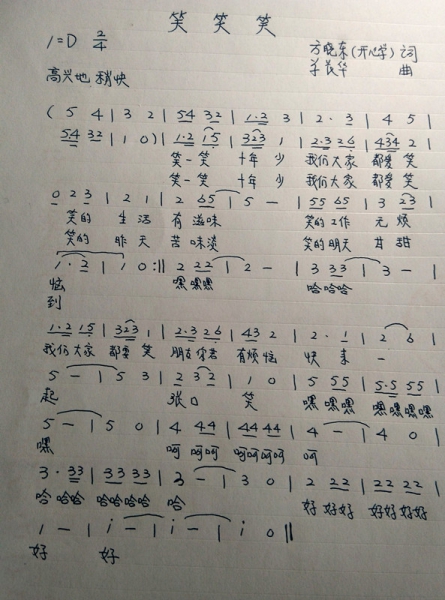 笑 笑 笑
1=D 2/4
方晓东(开心学) 词
羊长华 曲
高兴地 稍快
( 5 4 | 3 2 | 54 32 | 1·2 3 | 2 · 3 | 4 5 |
54 32 | 1 0 ) | 1·2 15 | 323 1 | 2·3 26 | 434 2 |
笑一笑 十年 少 我们大家 都爱 笑
笑一笑 十年 少 我们大家 都爱 笑
0 2 3 | 2 1 | 2 65 | 5 – | 55 65 | 3 23 |
笑的 生活 有滋味 笑的工作 无烦
笑的 昨天 苦味淡 笑的明天 甘甜
1 · 2 | 1 0 :|| 2 22 | 2 – | 3 33 | 3 – |
恼 嘿嘿嘿 哈哈哈
到
1·2 15 | 323 1 | 2·3 26 | 432 | 2 · 1 | 2 6 |
我们大家 都爱 笑 朋友你若 有烦恼 快来 –
5 – | 5 3 | 2 32 | 1 0 | 5 55 | 5·5 55 |
起 张口 笑 嘿 嘿嘿 嘿嘿嘿嘿
5 – | 5 0 | 4 44 | 44 44 | 4 – | 4 0 |
嘿 呵 呵呵 呵呵呵呵 呵
3 · 33 | 33 33 | 3 – | 3 0 | 2 22 | 22 22 |
哈 哈哈 哈哈哈哈 哈 好 好好 好好好好
1 – | i – | i – | i 0 ||
好 好